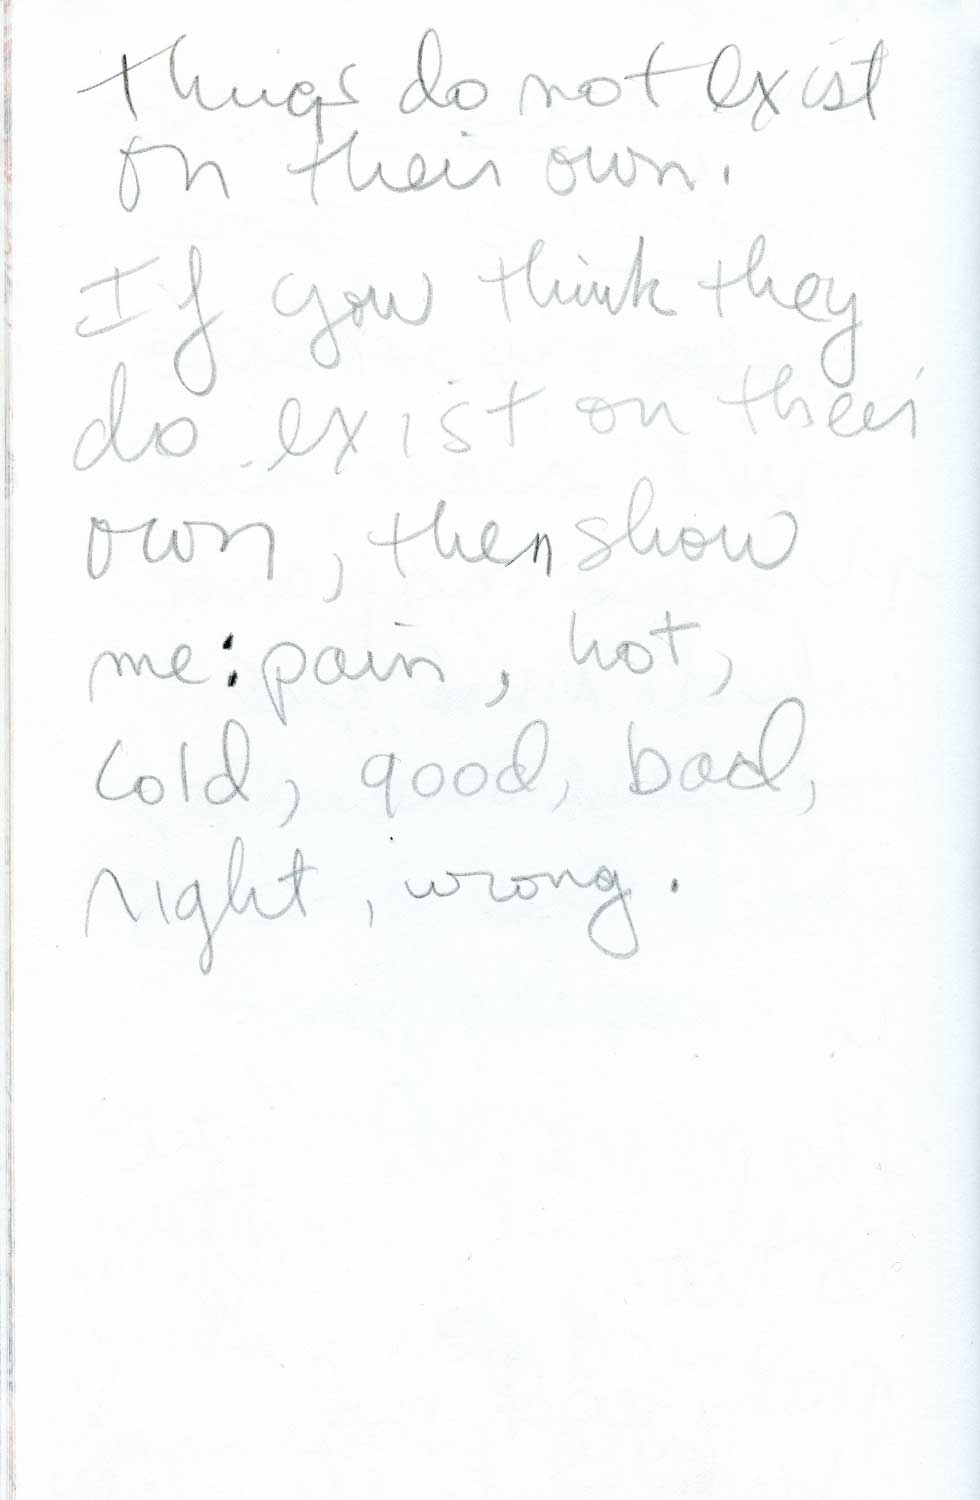 things do not exist
on their own.
If you think they
do exist on their
own, then show
me: pain, hot,
cold, good, bad,
right, wrong.